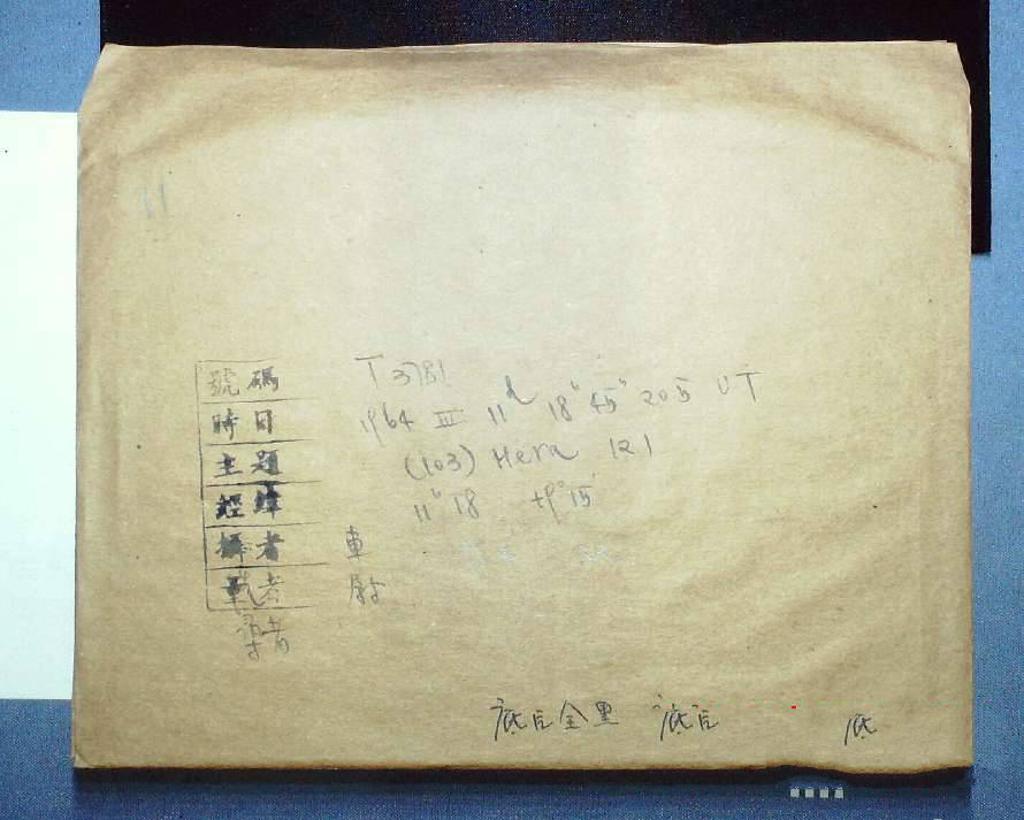 11
號碼 T 3781
時日 1964 III 11d 18h 45m 205 UT
主題 (103) Hera 121
經緯 11h 18 +9° 15'
攝者 車
者
者
底片全黑 底片 底